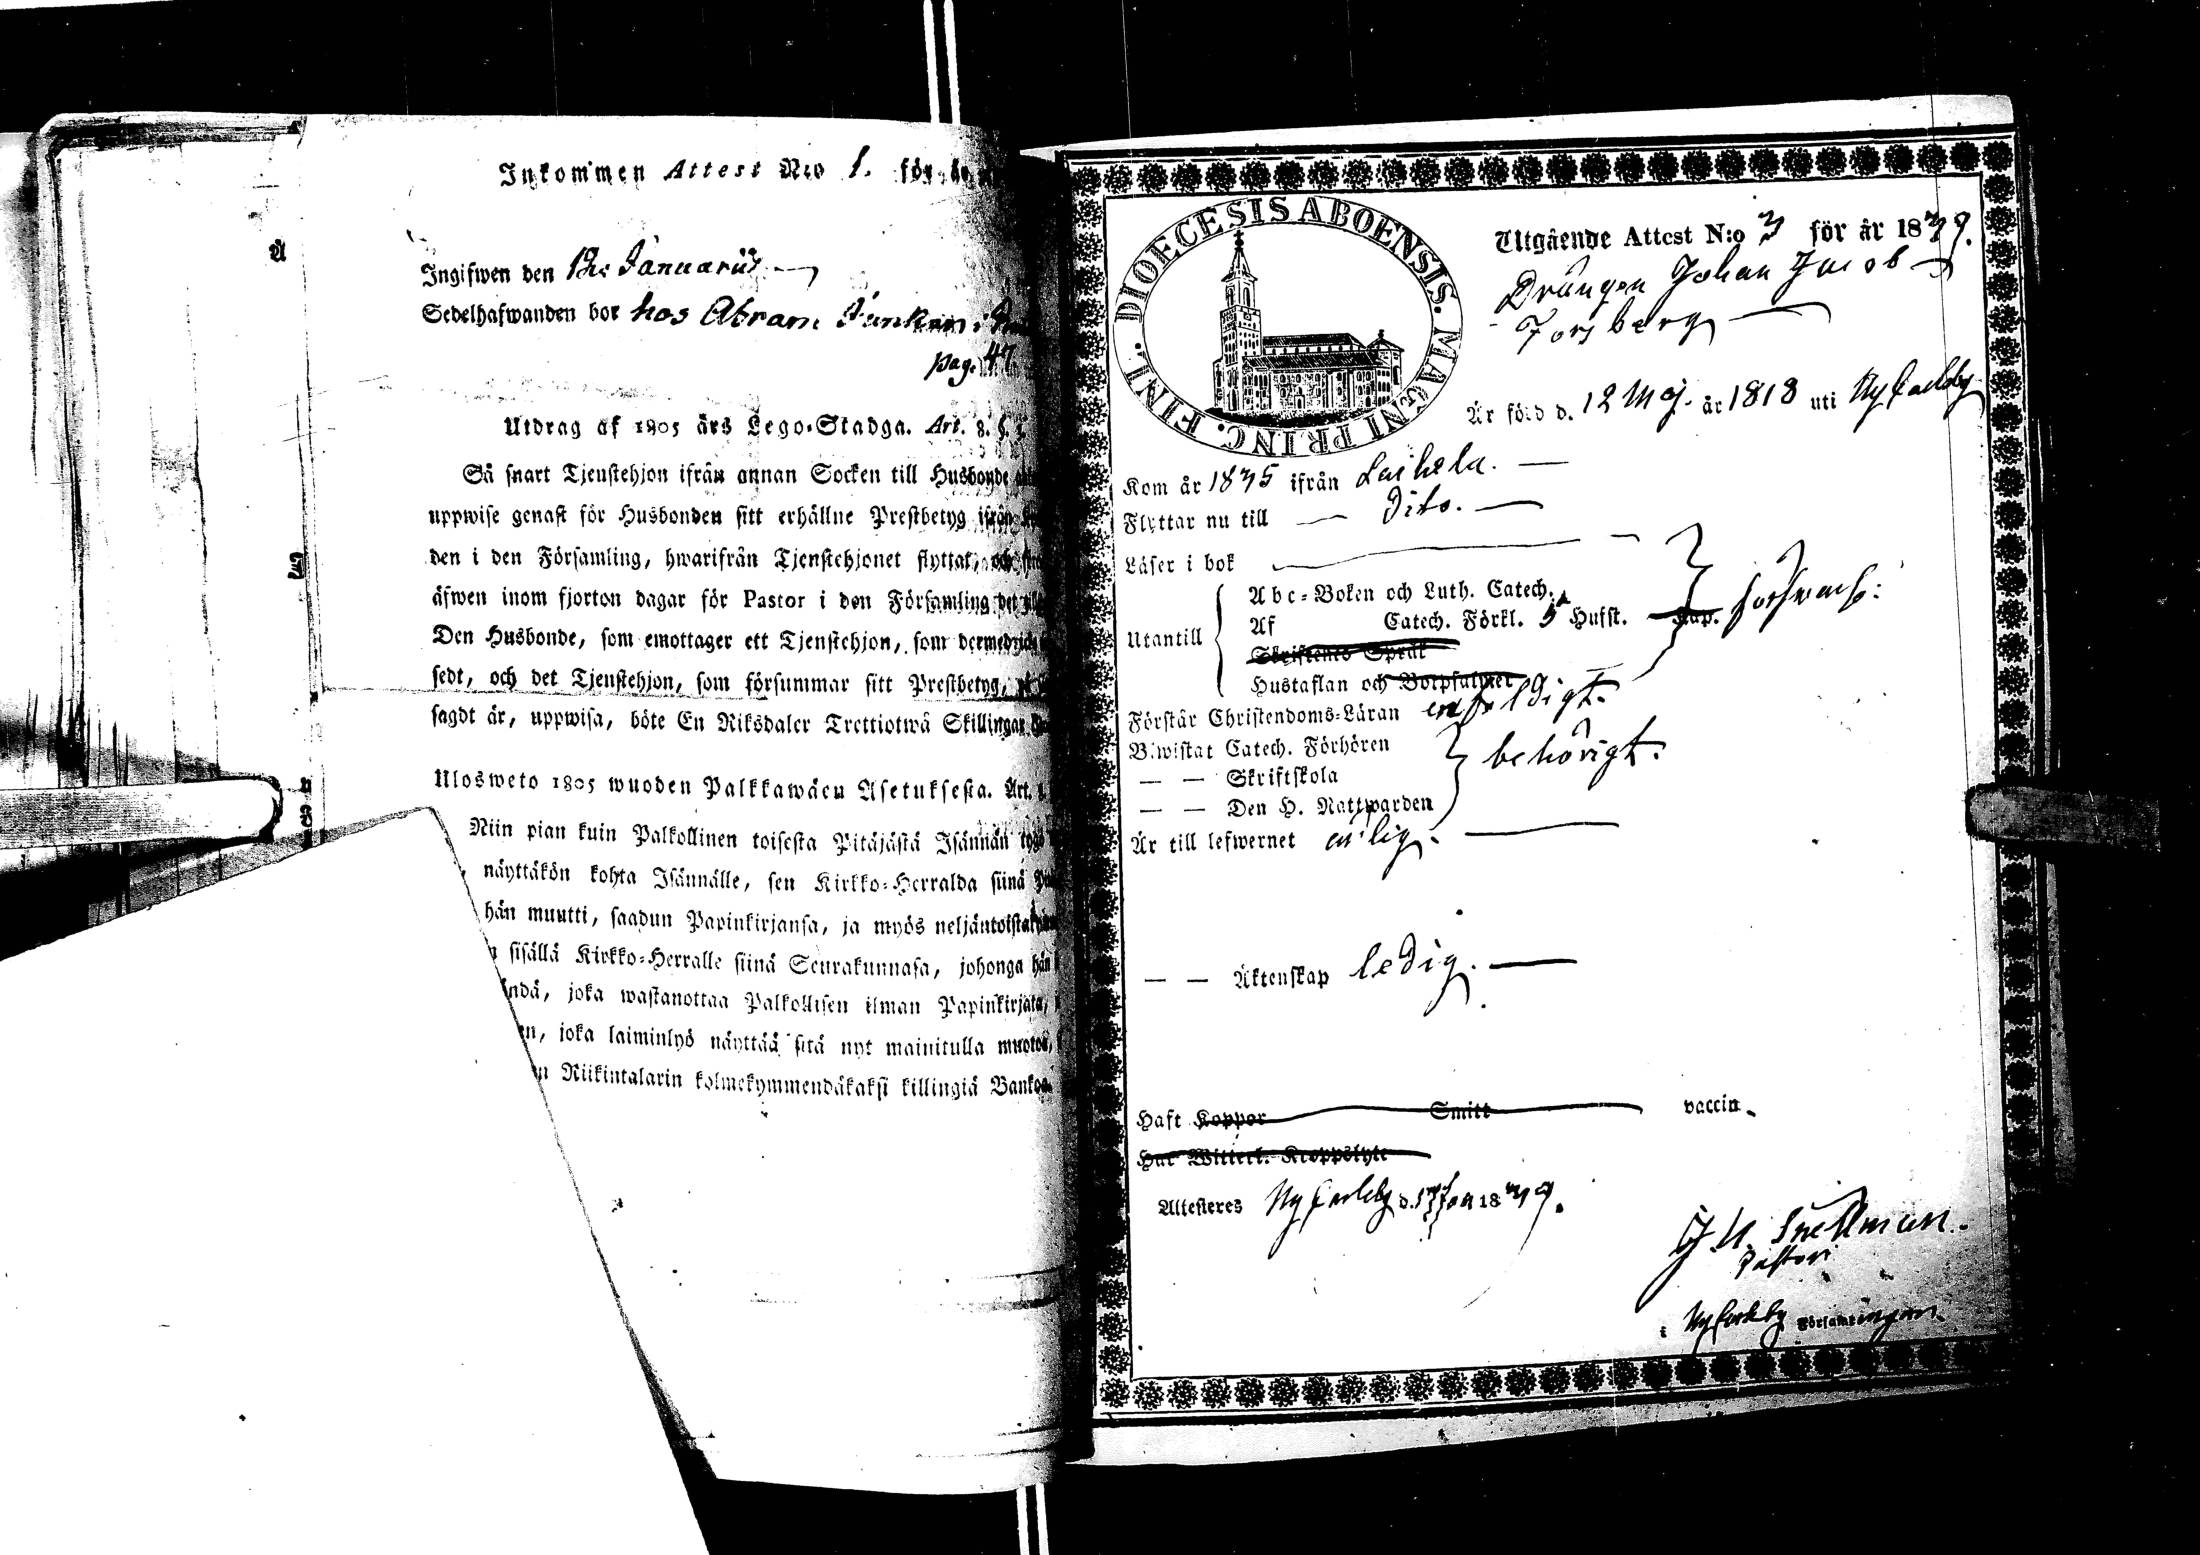 Inkommen Attest N:o 1. för år
Ingifwen den 12 Januarii
Sedelhafwanden bor hos Abram
pag. 47
Utdrag af 1805 års Lego-Stadga. Art. 8. §.
Så snart Tjenstehjon ifrån annan Socken till Husbonde
uppwise genast för Husbonden sitt erhållne Prestbetyg ifrån
den i den Församling, hwarifrån Tjenstehjonet flyttat, och
äfwen inom fjorton dagar för Pastor i den Församling det
Den Husbonde, som emottager ett Tjenstehjon, som dermed
sedt, och det Tjenstehjon, som försummar sitt Prestbetyg,
sagdt är, uppwisa, böte En Riksdaler Trettiotwå Skillingar
Ulosweto 1805 wuoden Palkkawäen Asetuksesta. Art.
Niin pian kuin Palkollinen toisesta Pitäjästä Isännän tygö
näyttäkön kohta Isännälle, sen Kirkko-Herralda siinä
hän muutti, saadun Papinkirjansa, ja myös neljäntoista
sisällä Kirkko-Herralle siinä Seurakunnasa, johonga hän
ändä, joka wastanottaa Palkollisen ilman Papinkirjata,
en, joka laiminlyö näyttää sitä nyt mainitulla muotoa,
Riikintalarin kolmekymmendäkaksi killingiä Bankoa
DIOECESIS ABOENSIS. MAGNI PRINC. FINL.
Utgående Attest N:o 3 för år 1839.
Drängen Johan Jacob
Forsberg
Är född d. 12 Maj. år 1818 uti Ny Carleby
Kom år 1835 ifrån Laihela.
Flyttar nu till Dito.
Läser i bok
Utantill
Abc-Boken och Luth. Catech.
Af Catech. Förkl. 5 Hufst. Kap.
förswarl:
Skriftenes Språk
Hustaflan och Botpsalmer
Förstår Christendoms-Läran enfaldigt.
Biwistat Catech. Förhören
— — Skriftskola
behörigt.
— — Den H. Nattwarden
Är till lefwernet
— — Äktenskap ledig.
Haft Koppor Smitt vaccin.
Har Witterl. Kroppslyte
Attesteres Ny Carleby d. Jan 1839.
Snellman.
Pastor
i Ny Carleby Församlingen.